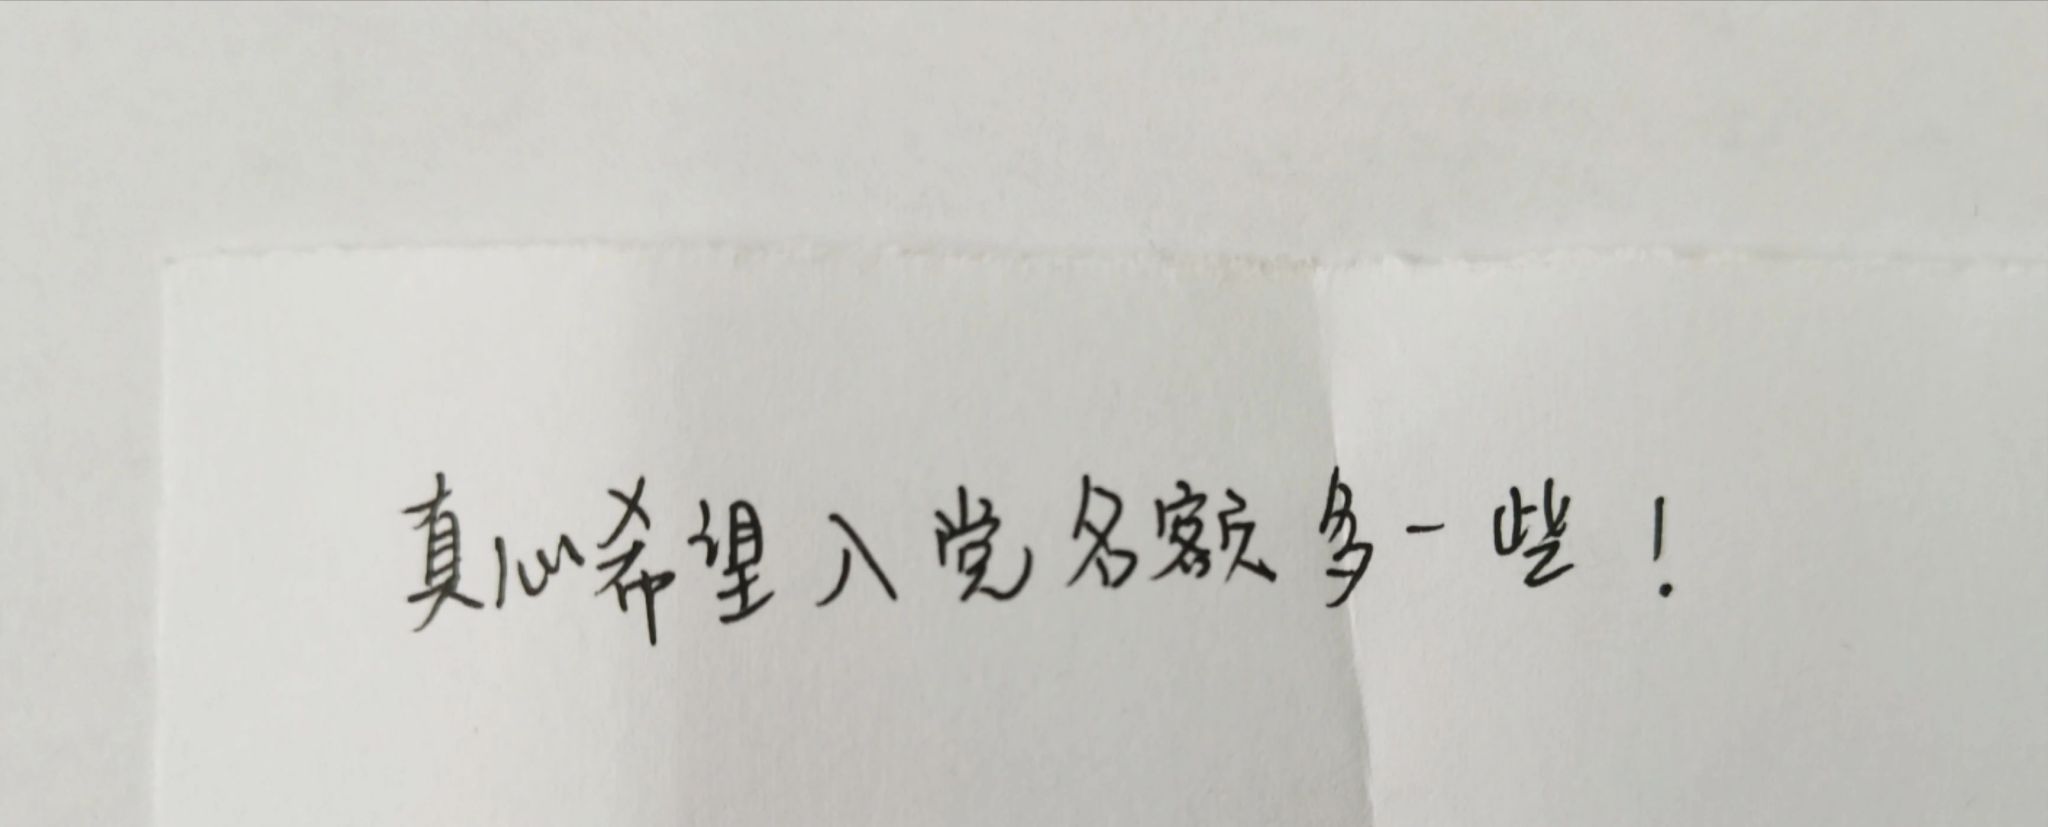 真心希望入党名额多一些!